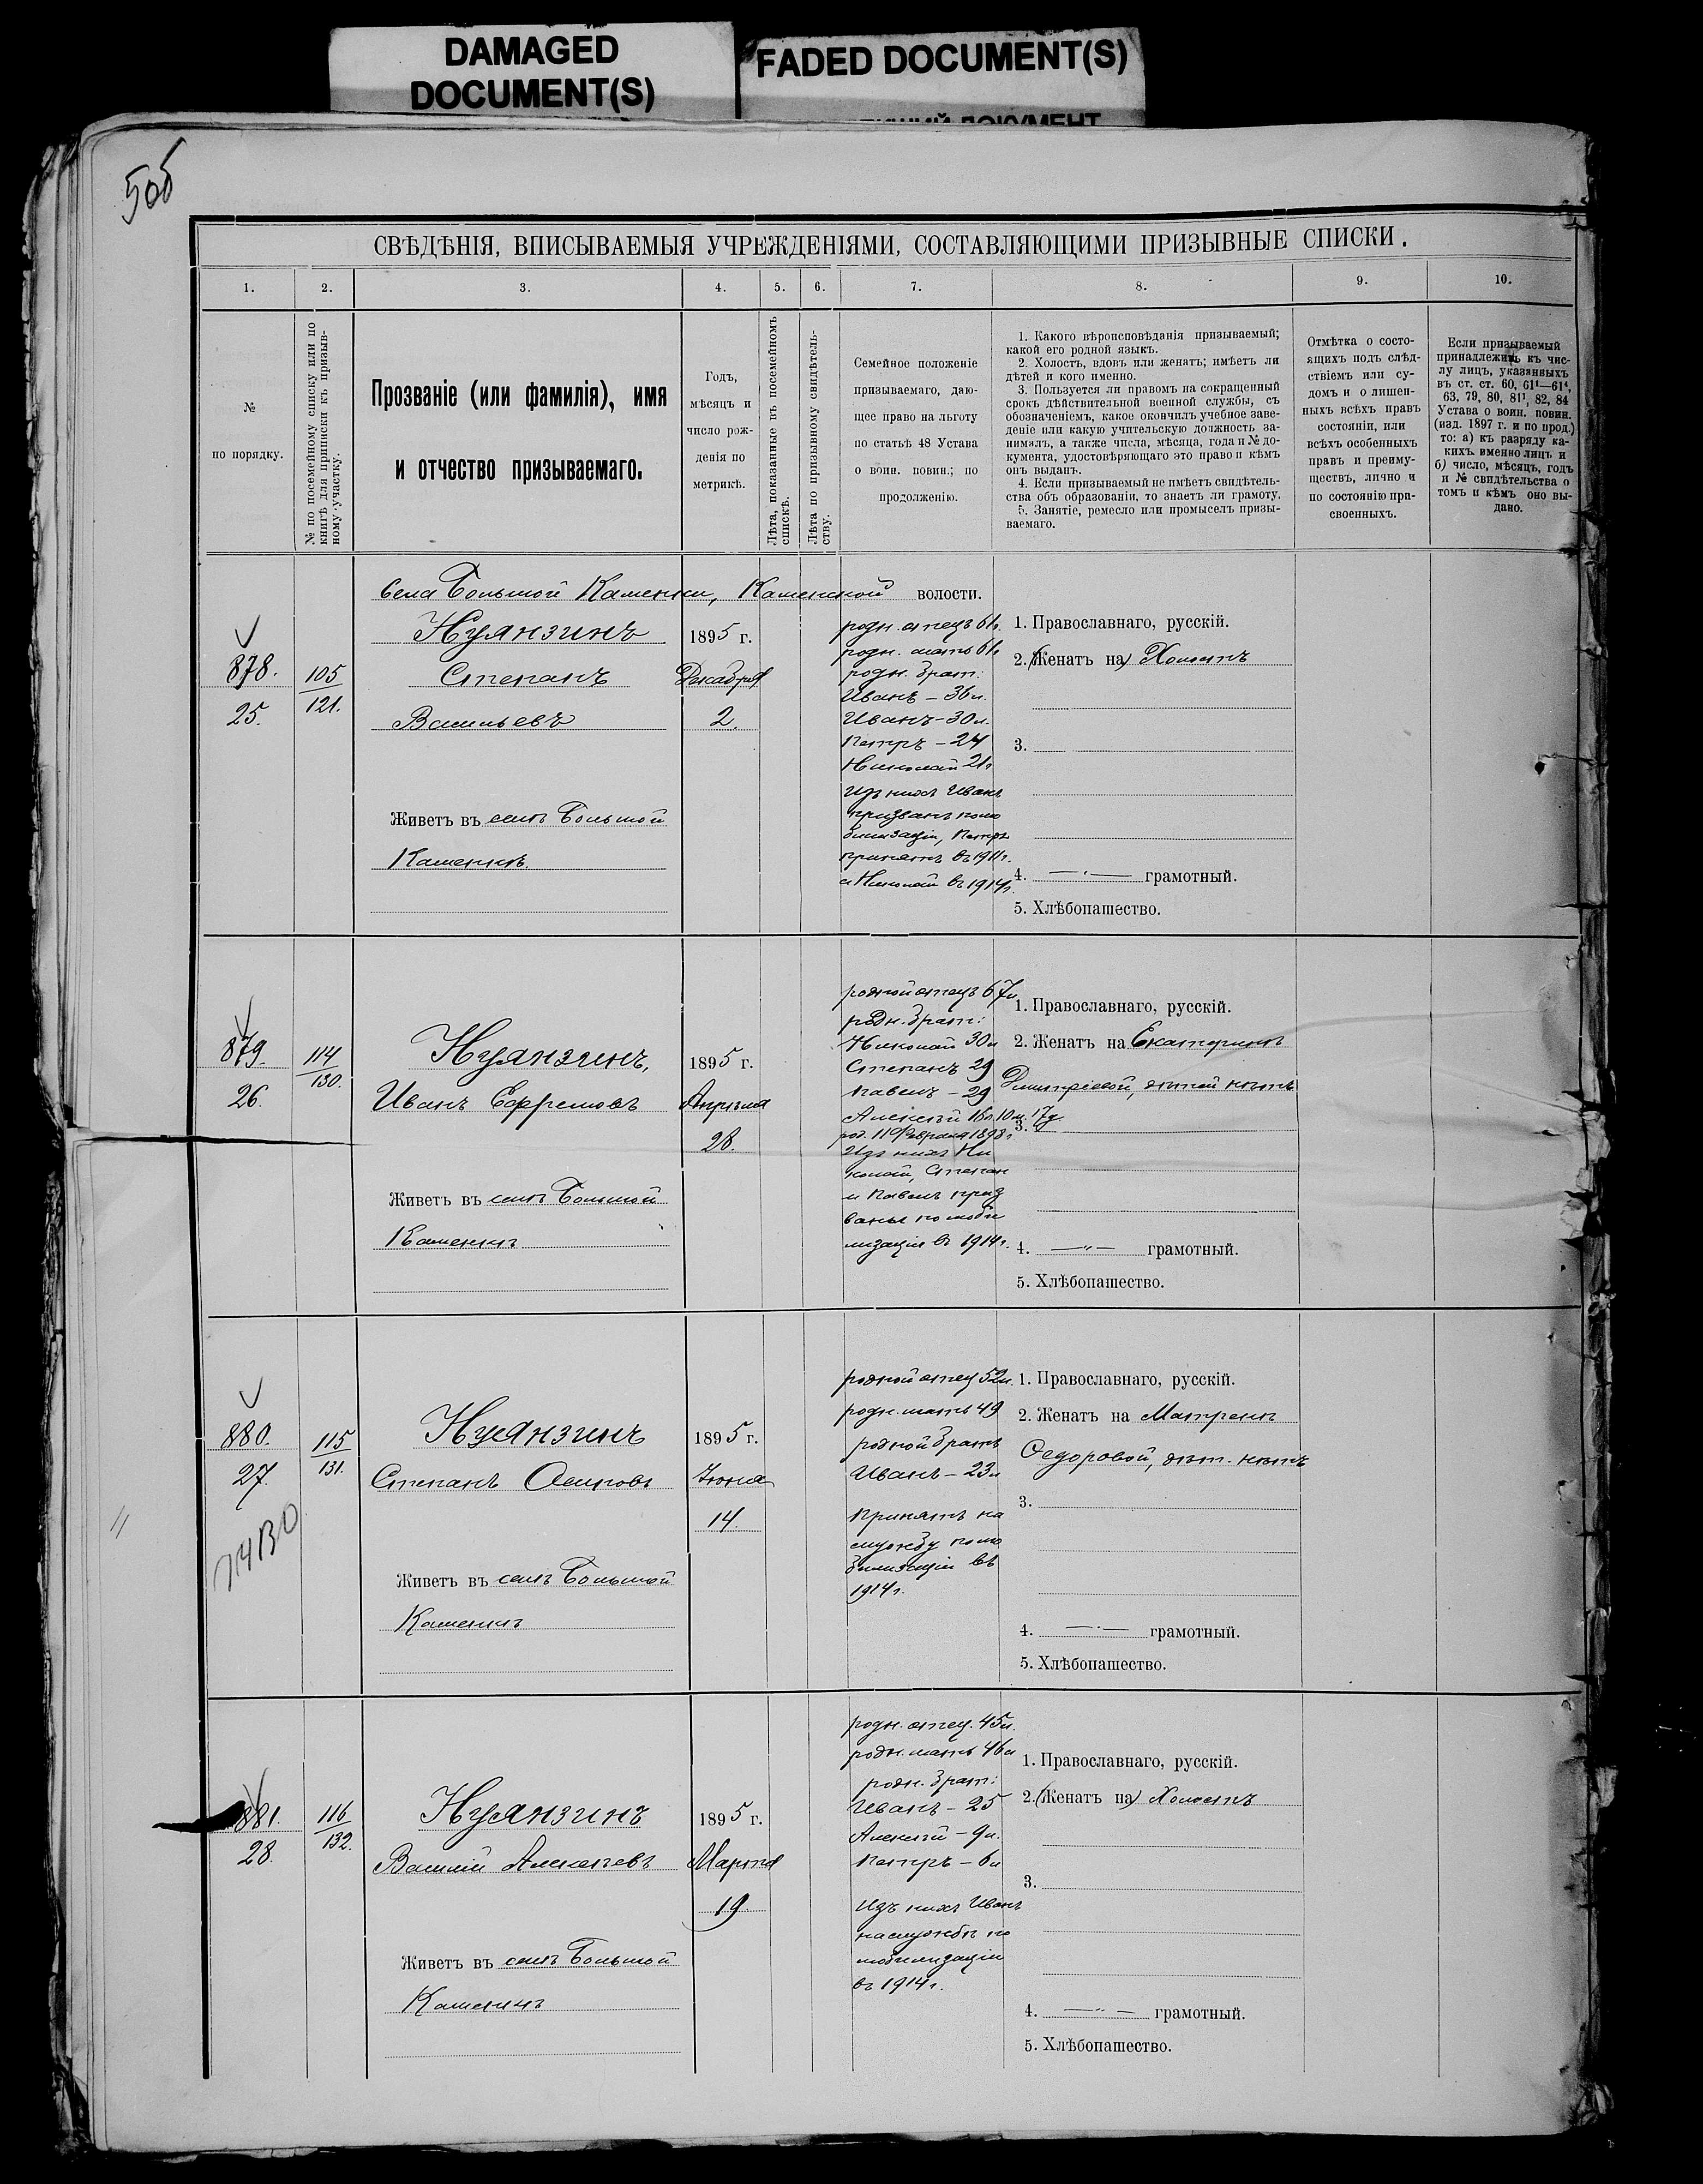 DAMAGED
DOCUMENT(S)
FADED DOCUMENT(S)
506
СВѢДѢНІЯ, ВПИСЫВАЕМЫЯ УЧРЕЖДЕНІЯМИ, СОСТАВЛЯЮЩИМИ ПРИЗЫВНЫЕ СПИСКИ.
1. 2. 3. 4. 5. 6. 7. 8. 9. 10.
№
по порядку.
№ по посемейному списку или по
книгѣ для приписки къ призыв-
ному участку.
Прозваніе (или фамилія), имя
и отчество призываемаго.
Годъ,
мѣсяцъ и
число рож-
денія по
метрикѣ.
Лѣта, показанные въ посемейномъ
спискѣ.
Лѣта по призывному свидѣтель-
ству.
Семейное положеніе
призываемаго, даю-
щее право на льготу
по статьѣ 48 Устава
о воин. повин.; по
продолженію.
1. Какого вѣроисповѣданія призываемый;
какой его родной языкъ.
2. Холостъ, вдовъ или женатъ; имѣетъ ли
дѣтей и кого именно.
3. Пользуется ли правомъ на сокращенный
срокъ дѣйствительной военной службы, съ
обозначеніемъ, какое окончилъ учебное заве-
деніе или какую учительскую должность за-
нималъ, а также числа, мѣсяца, года и № до-
кумента, удостовѣряющаго это право и кѣмъ
онъ выданъ.
4. Если призываемый не имѣетъ свидѣтель-
ства объ образованіи, то знаетъ ли грамоту.
5. Занятіе, ремесло или промыселъ призы-
ваемаго.
Отмѣтка о состо-
ящихъ подъ слѣд-
ствіемъ или су-
домъ и о лишен-
ныхъ всѣхъ правъ
состоянія, или
всѣхъ особенныхъ
правъ и преиму-
ществъ, лично и
по состоянію при-
своенныхъ.
Если призываемый
принадлежитъ къ чис-
лу лицъ, указанныхъ
въ ст. ст. 60, 61¹—61⁴,
63, 79, 80, 81¹, 82, 84
Устава о воин. повин.
(изд. 1897 г. и по прод.)
то: а) къ разряду ка-
кихъ именно лицъ и
б) число, мѣсяцъ, годъ
и № свидѣтельства о
томъ и кѣмъ оно вы-
дано.
Села Большой Каменки, Каменской волости.
878.
25.
105
121.
Нуянзинъ
Степанъ
Васильевъ
Живетъ въ селѣ Большой
Каменкѣ.
1895 г.
Декабря
2.
родн. отецъ 61г.
родн. мать 61г
родн. брат:
Иванъ – 36л.
Иванъ – 30л.
Петръ – 24
Николай 21г
Изъ нихъ Иванъ
призванъ по мо
билизаціи, Петръ
принятъ въ 1911г.
а Николай въ 1914г.
1. Православнаго, русскій.
2. (Женатъ на) Холостъ
3.
4. —"— грамотный.
5. Хлѣбопашество.
879.
26.
114
130.
Нуянзинъ,
Иванъ Ефремовъ
Живетъ въ селѣ Большой
Каменкѣ
1895 г.
Апрѣля
28.
родной отецъ 67л
родн. брат:
Николай 30л
Степанъ 29
Павелъ – 29
Алексѣй 16л. 10м. 17д.
род. 11 Февраля 1898г
Изъ нихъ Ни
колай, Степан
и Павелъ приз
ваны по моби
лизаціи въ 1914г.
1. Православнаго, русскій.
2. Женатъ на Екатеринѣ
Дмитріевой, дѣтей нѣтъ
3.
4. —"— грамотный.
5. Хлѣбопашество.
880.
27.
115
131.
Нуянзинъ
Степанъ Осиповъ
Живетъ въ селѣ Большой
Каменкѣ
1895 г.
Іюня
14.
родной отец 52л.
родн. мать 49
родной братъ
Иванъ – 23л
Принятъ на
службу по мо
билизаціи въ
1914г.
1. Православнаго, русскій.
2. Женатъ на Матренѣ
Ѳедоровой, дѣт. нѣтъ
3.
4. —"— грамотный.
5. Хлѣбопашество.
881.
28.
116
132.
Нуянзинъ
Василій Алексѣевъ
Живетъ въ селѣ Большой
Каменкѣ
1895 г.
Марта
19.
родн. отец. 45л.
родн. мать 46л
родн. брат:
Иванъ – 25
Алексѣй – 9л.
Петръ – 6л
Изъ нихъ Иванъ
на службѣ по
мобилизаціи
въ 1914г.
1. Православнаго, русскій.
2. (Женатъ на) Холостъ
3.
4. —"— грамотный.
5. Хлѣбопашество.